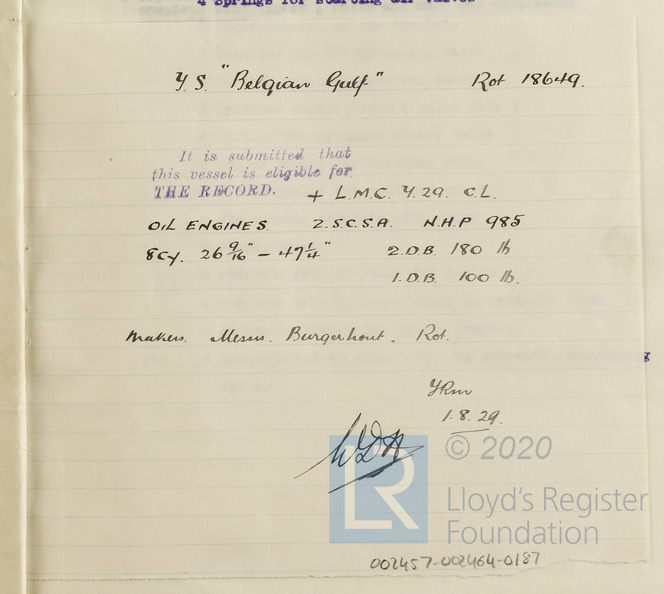 4 Springs for starting air valves
Y.S. "Belgian Gulf" Rot 18649.
It is submitted that
this vessel is eligible for
THE RECORD. + L.M.C. 7.29. C.L.
OIL ENGINES. 2.S.C.S.A. N.H.P 985
8 Cy. 26 9/16" – 47 1/4" 2.D.B. 180 lb
1.D.B. 100 lb.
Makers. Messrs. Burgerhout. Rot.
1.8.29.
LR
© 2020
Lloyd's Register
Foundation
002457-002464-0187